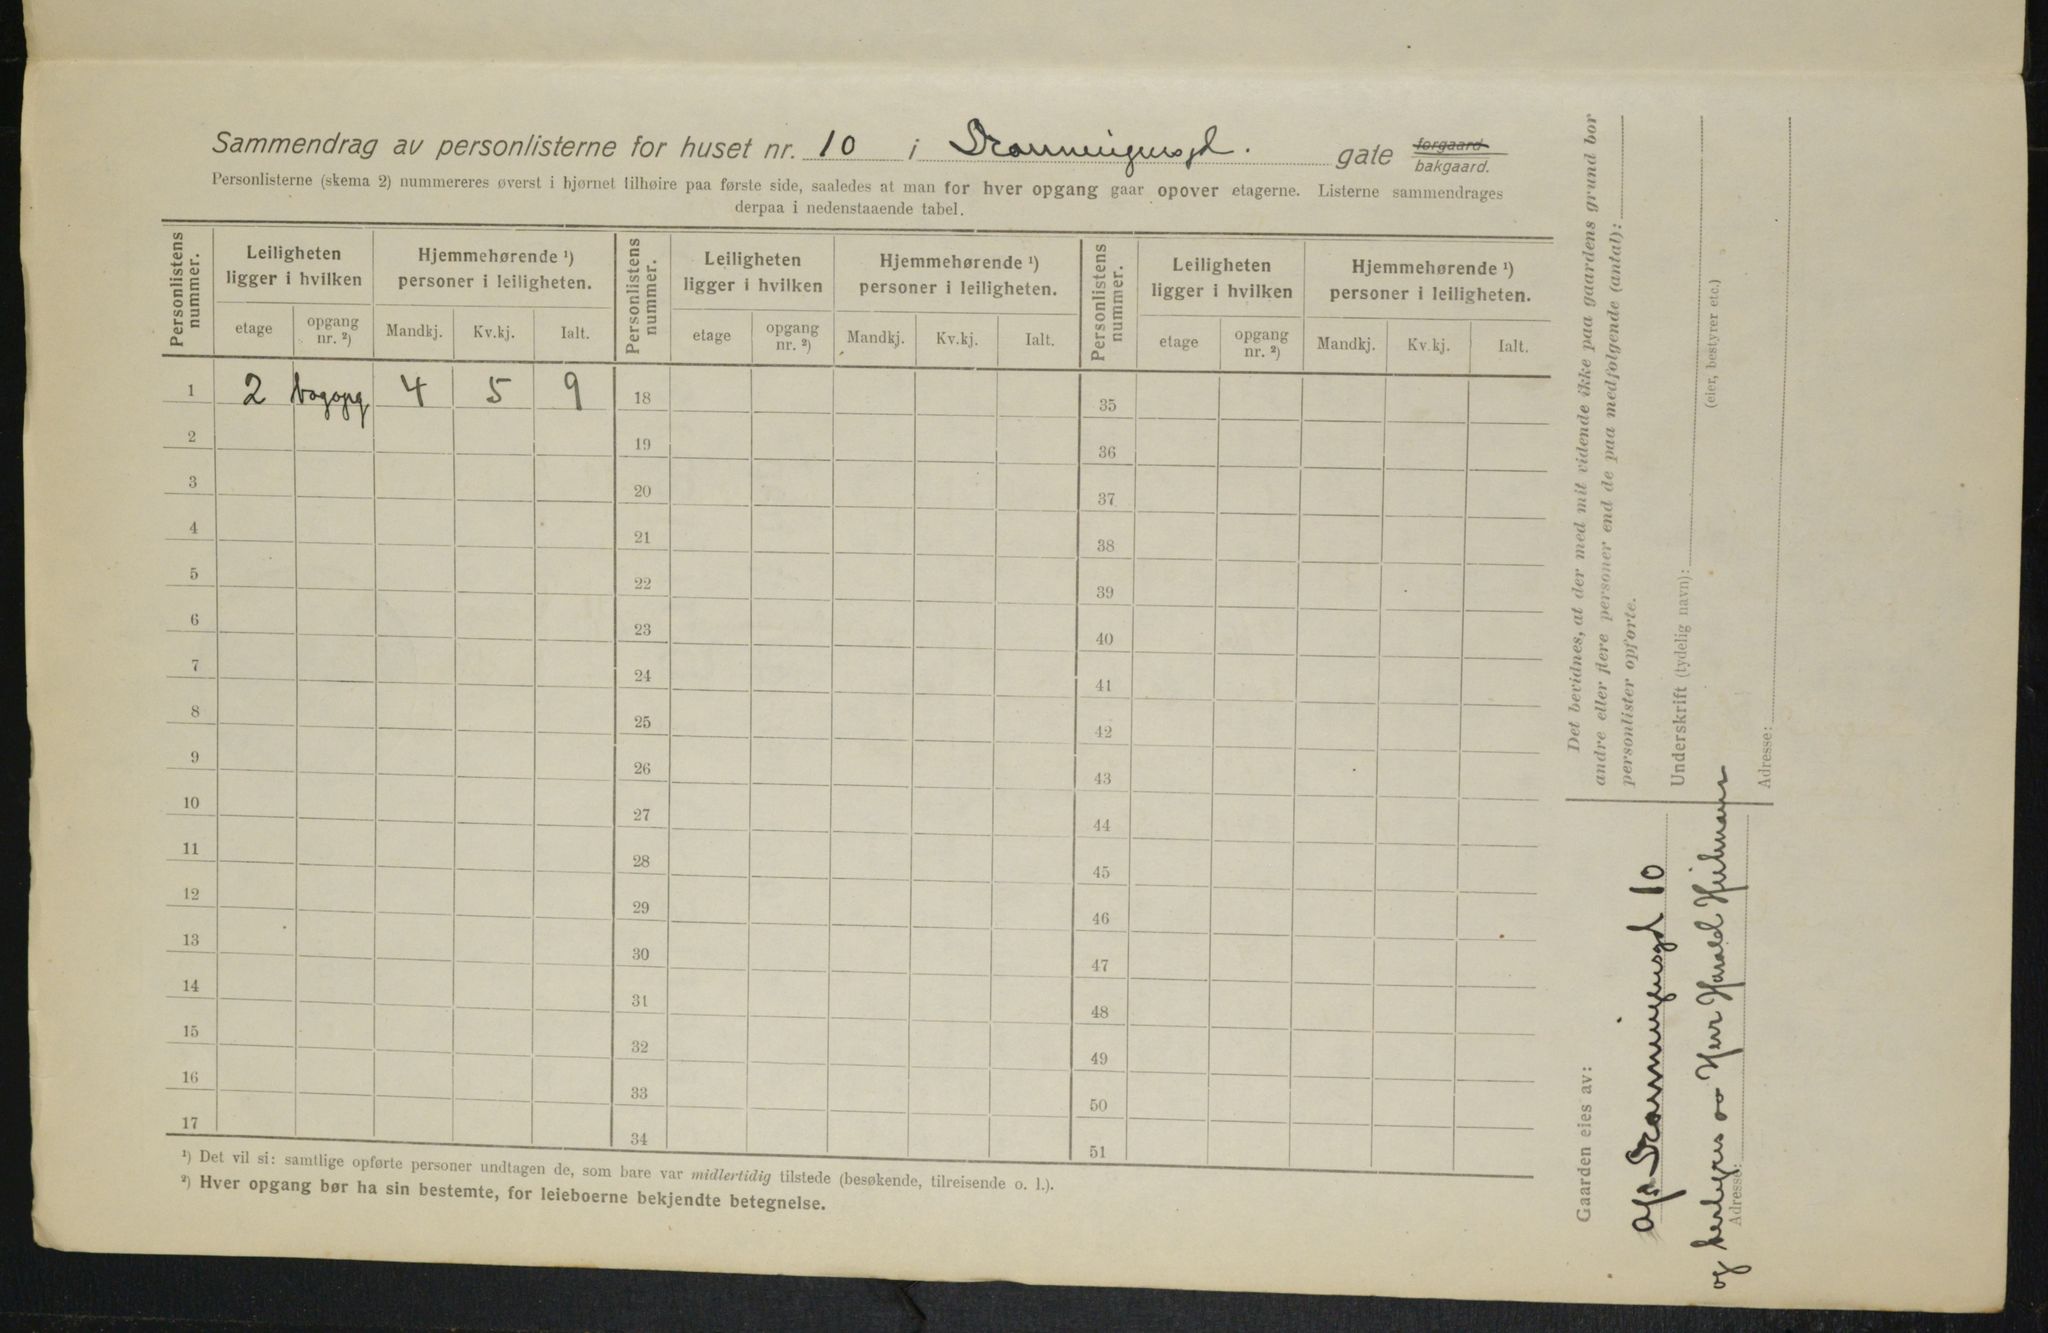 Sammendrag av personlisterne for huset nr. 10 i Dronningensgd. gate forgaard bakgaard.
Personlisterne (skema 2) nummereres øverst i hjørnet tilhøire paa første side, saaledes at man for hver opgang gaar opover etagerne. Listerne sammendrages
derpaa i nedenstaaende tabel.
Personlistens nummer. Leiligheten ligger i hvilken Hjemmehørende ¹) personer i leiligheten. Personlistens nummer. Leiligheten ligger i hvilken Hjemmehørende ¹) personer i leiligheten. Personlistens nummer. Leiligheten ligger i hvilken Hjemmehørende ¹) personer i leiligheten.
etage opgang nr. ²) Mandkj. Kv.kj. Ialt. etage opgang nr. ²) Mandkj. Kv.kj. Ialt. etage opgang nr. ²) Mandkj. Kv.kj. Ialt.
1 2 bagopg 4 5 9 18 35
2 19 36
3 20 37
4 21 38
5 22 39
6 23 40
7 24 41
8 25 42
9 26 43
10 27 44
11 28 45
12 29 46
13 30 47
14 31 48
15 32 49
16 33 50
17 34 51
¹) Det vil si: samtlige opførte personer undtagen de, som bare var midlertidig tilstede (besøkende, tilreisende o. l.).
²) Hver opgang bør ha sin bestemte, for leieboerne bekjendte betegnelse.
Det bevidnes, at der med mit vidende ikke paa gaardens grund bor
andre eller flere personer end de paa medfølgende (antal):
personlister opførte.
Underskrift (tydelig navn):
(eier, bestyrer etc.)
Adresse:
Gaarden eies av:
A/S Dronningensgd 10
og bestyres av Herr Harald Heilmann
Adresse: